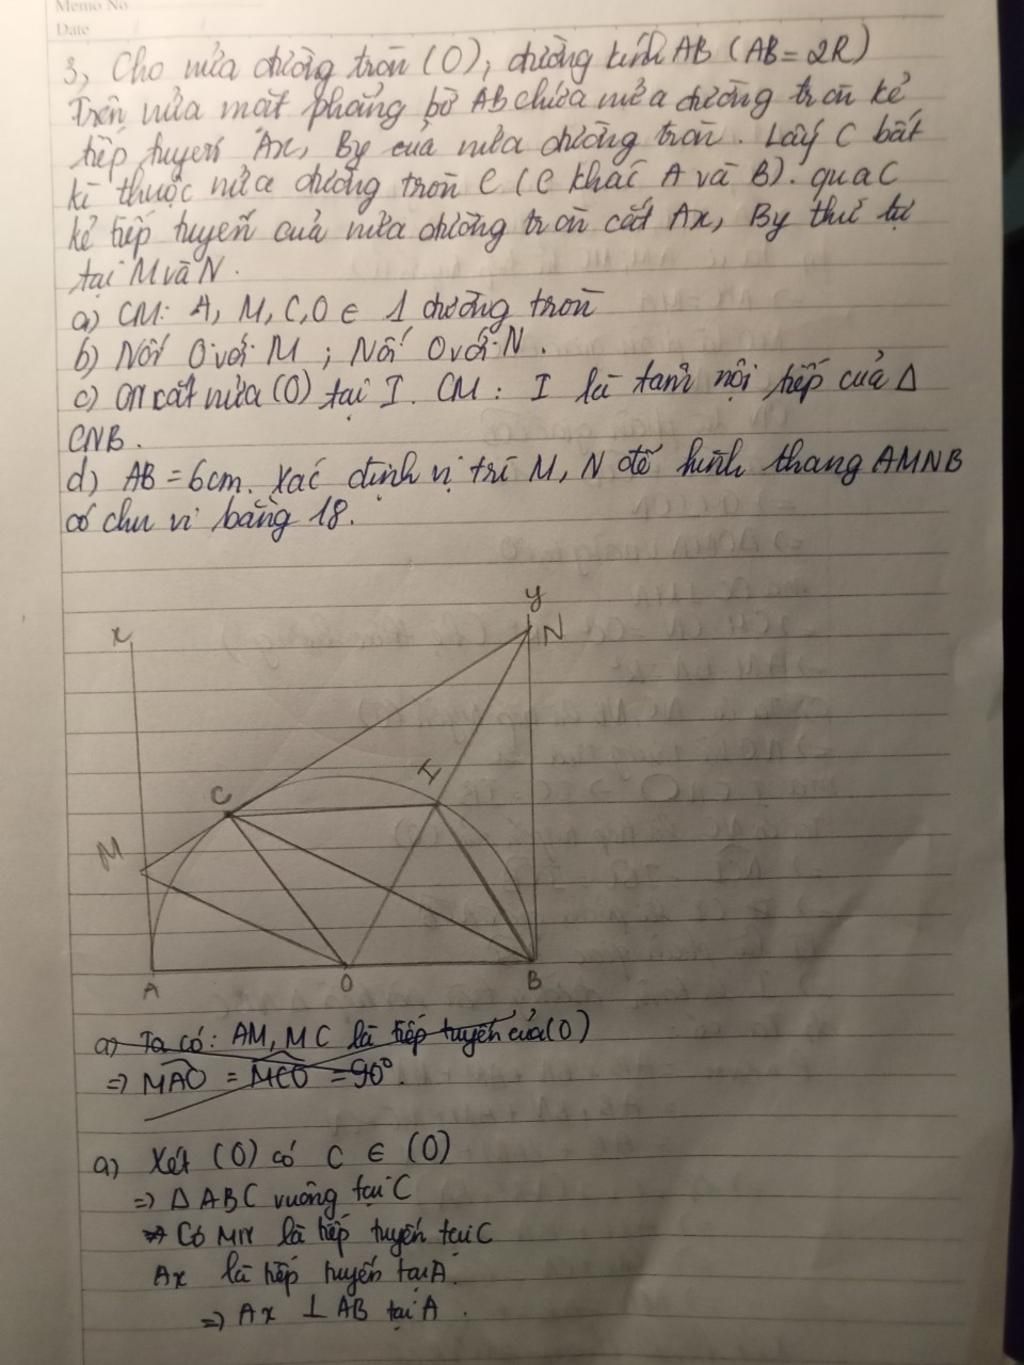 Memo No
Date
3, Cho nửa đường tròn (O), đường kính AB (AB = 2R)
Trên nửa mặt phẳng bờ AB chứa nửa đường tròn kẻ
tiếp tuyến Ax, By của nửa đường tròn. Lấy C bất
kì thuộc nửa đường tròn C (C khác A và B). qua C
kẻ tiếp tuyến của nửa đường tròn cắt Ax, By thứ tự
tại M và N.
a) CM: A, M, C, O ∈ 1 đường tròn
b) Nối O với M ; Nối O với N.
c) ON cắt nửa (O) tại I. CM : I là tâm nội tiếp của Δ
CNB.
d) AB = 6cm. Xác định vị trí M, N để hình thang AMNB
có chu vi bằng 18.
y
x
N
I
C
M
A
O
B
a) Ta có: AM, MC là tiếp tuyến của (O)
=> MAO = MCO = 90°.
a) Xét (O) có C ∈ (O)
=> Δ ABC vuông tại C
Có MN là tiếp tuyến tại C
Ax là tiếp tuyến tại A.
=> Ax ⊥ AB tại A.